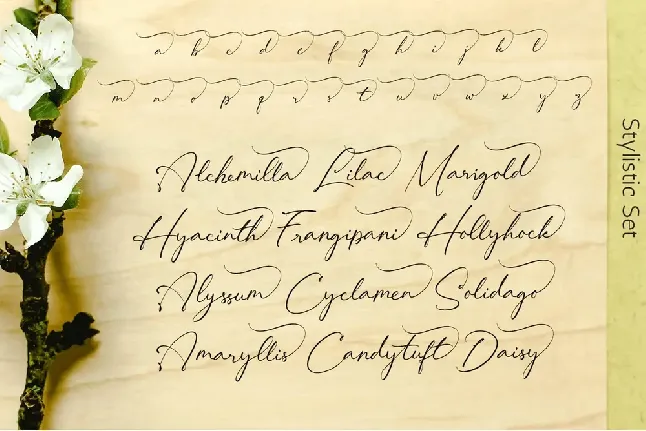 a b c d e f g h i j k l
m n o p q r s t u v w x y z
Alchemilla Lilac Marigold
Hyacinth Frangipani Hollyhock
Alyssum Cyclamen Solidago
Amaryllis Candytuft Daisy
Stylistic Set